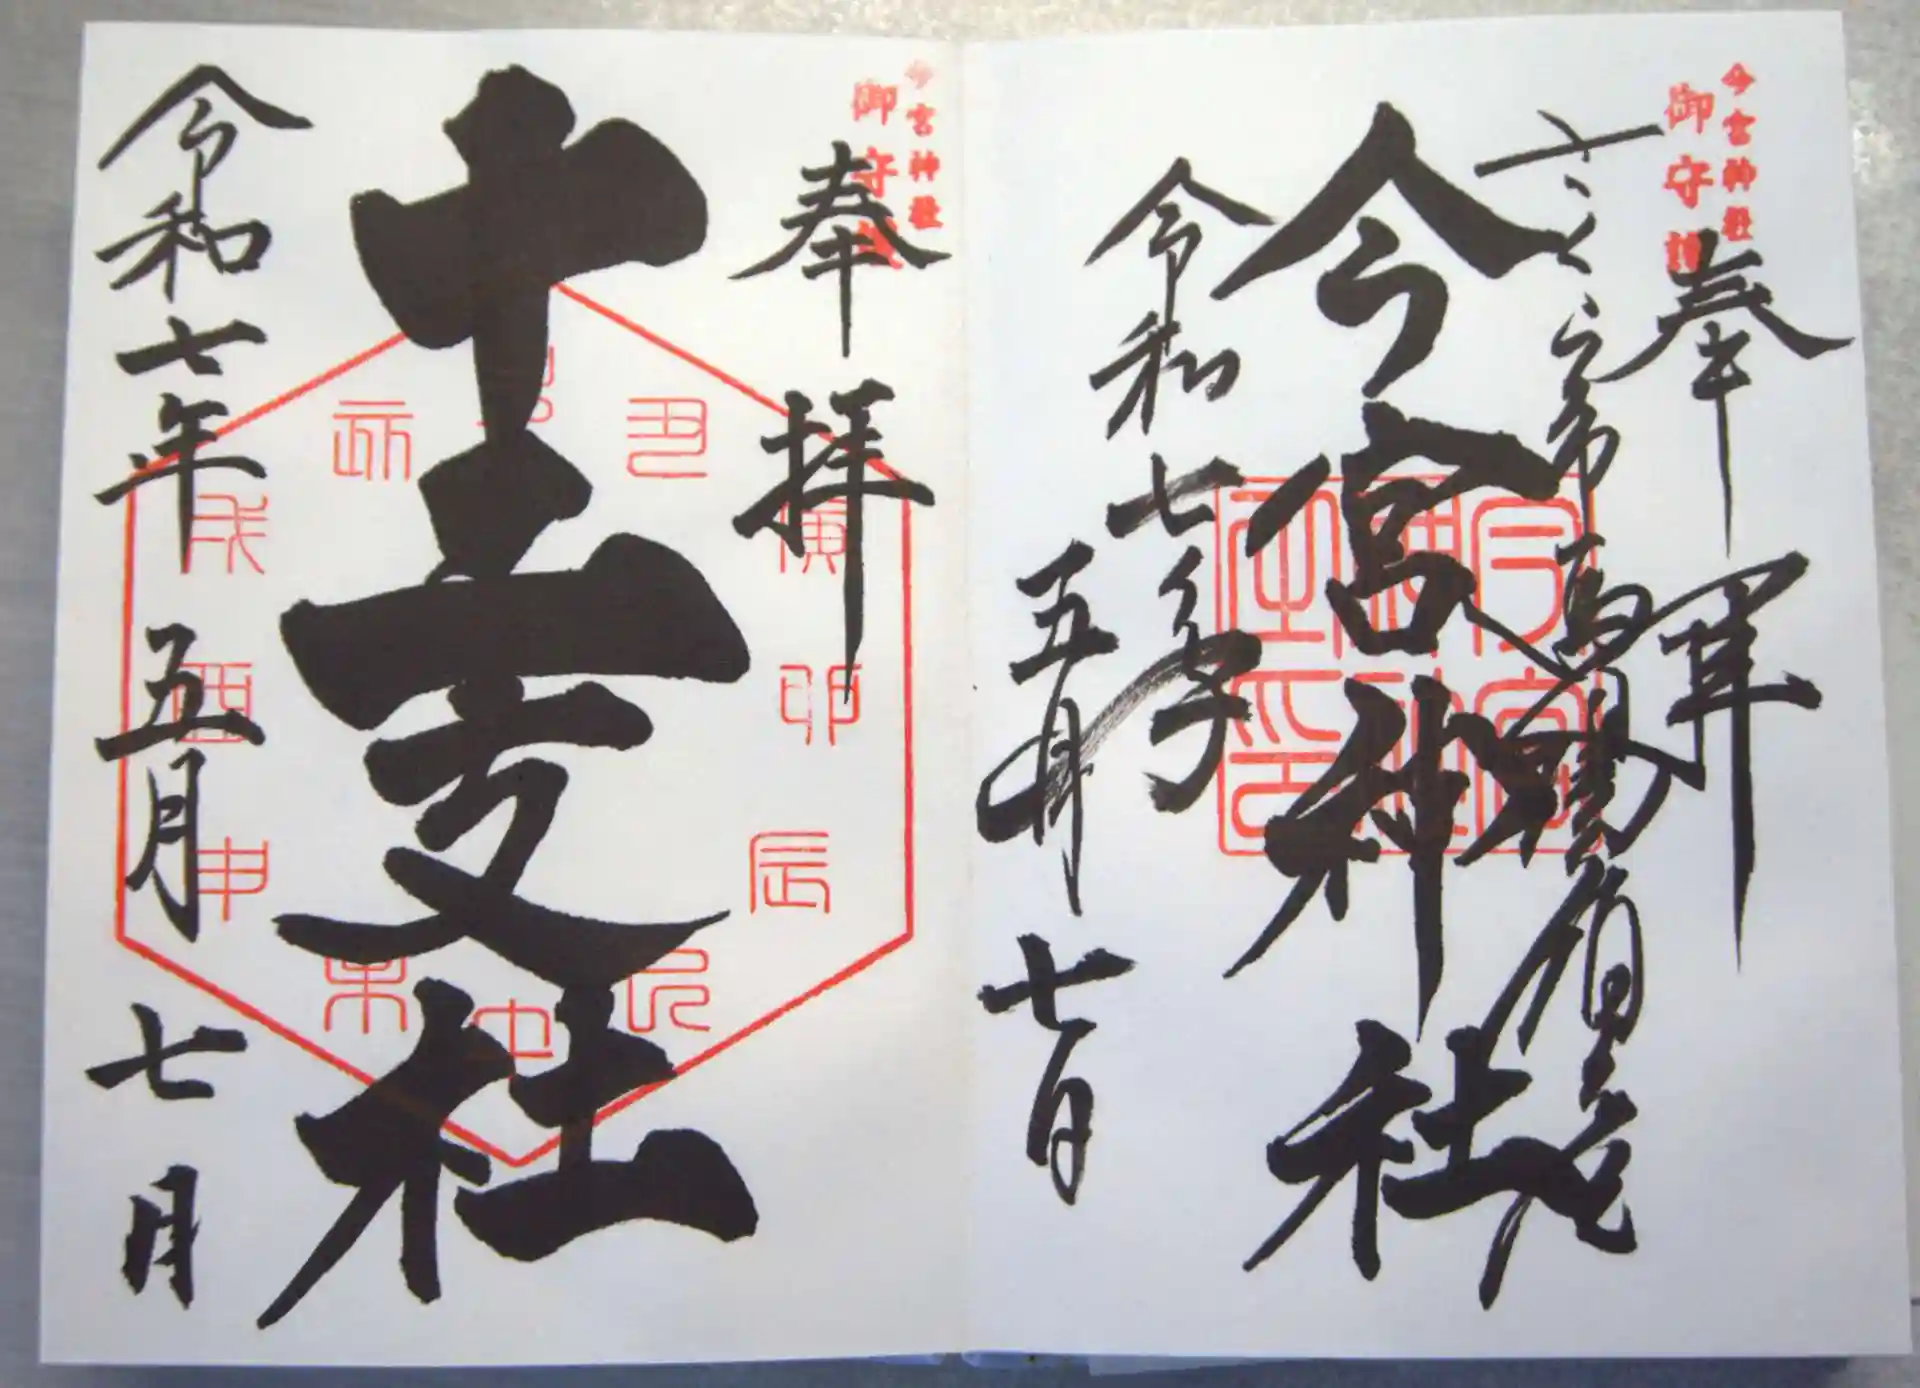 今宮神社
御守護
奉拝
今宮神社
令和七年
五月七日
今宮神社
御守護
奉拝
十二支社
丑
寅
卯
辰
巳
午
未
申
酉
戌
亥
令和七年五月七日